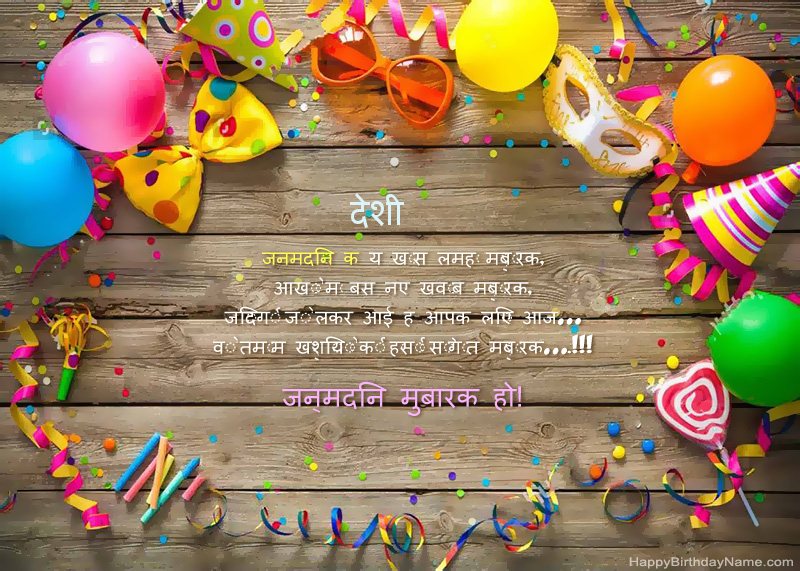 देशी
जन्मदिन के ये ख़ास लम्हे मुबारक,
आँखों में बसे नए ख्वाब मुबारक,
जिंदगी जो लेकर आई है आपके लिए आज...
वो तमाम खुशियों की हसीं सौगात मुबारक...!!!
जन्मदिन मुबारक हो!
HappyBirthdayName.com